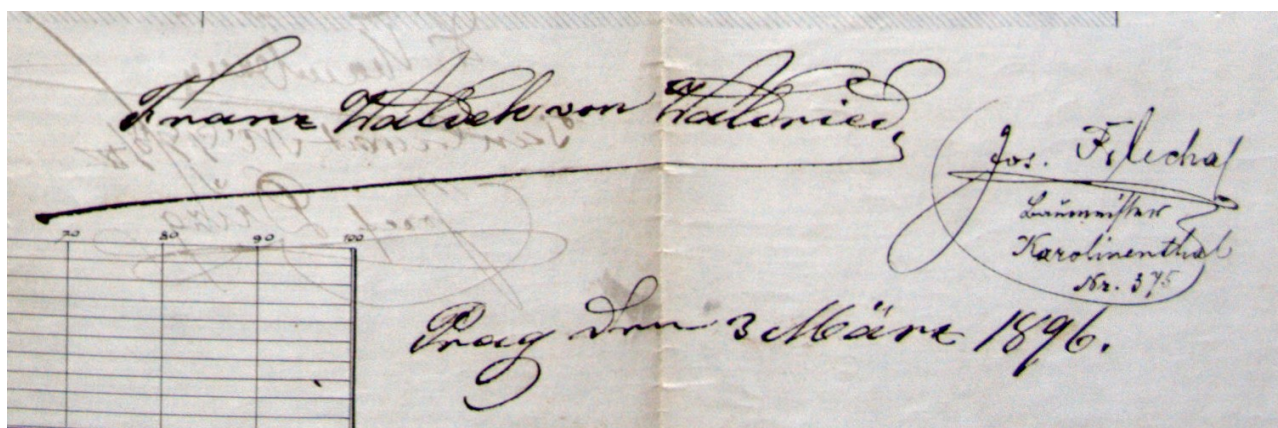 Franz Waldek von Waldried
Jos. Filechal
Baumeister
Karolinenthal
Nr. 375
70 80 90 100
Prag den 3 März 1896.